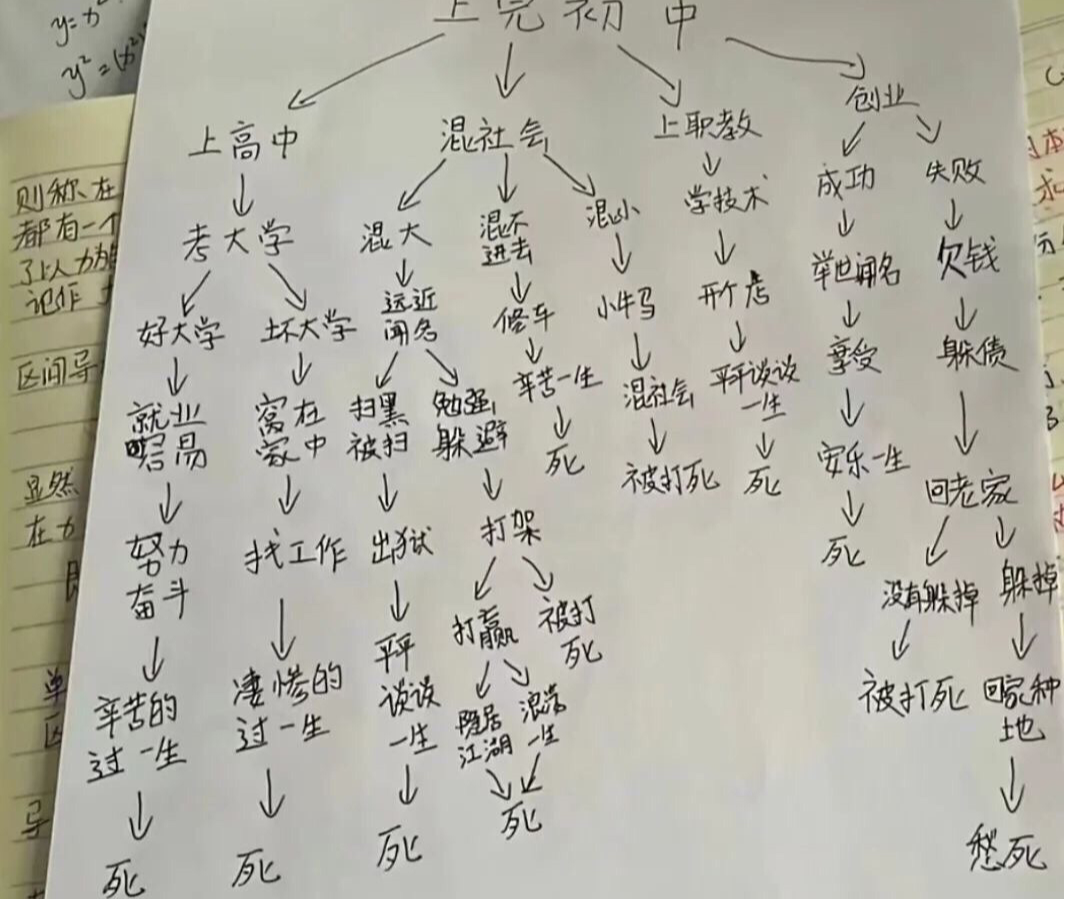 y=x²
y²=(x²
上完初中
上高中
混社会
上职教
创业
考大学
混大
混不
进去
混小
学技术
成功
失败
好大学
坏大学
远近
闻名
修车
小牛马
开个店
举世闻名
欠钱
就业
容易
窝在
家中
扫黑
被扫
勉强
躲避
辛苦一生
混社会
平平谈谈
一生
享受
躲债
死
被打死
死
安乐一生
回老家
努力
奋斗
找工作
出狱
打架
死
没有躲掉
躲掉
辛苦的
过一生
凄惨的
过一生
平平
谈谈
一生
打赢
被打
死
隐居
江湖
浪荡
一生
被打死
回家种
地
死
死
死
死
愁死
则称在
都有一个
记作
区间导
显然
在
单
区
导